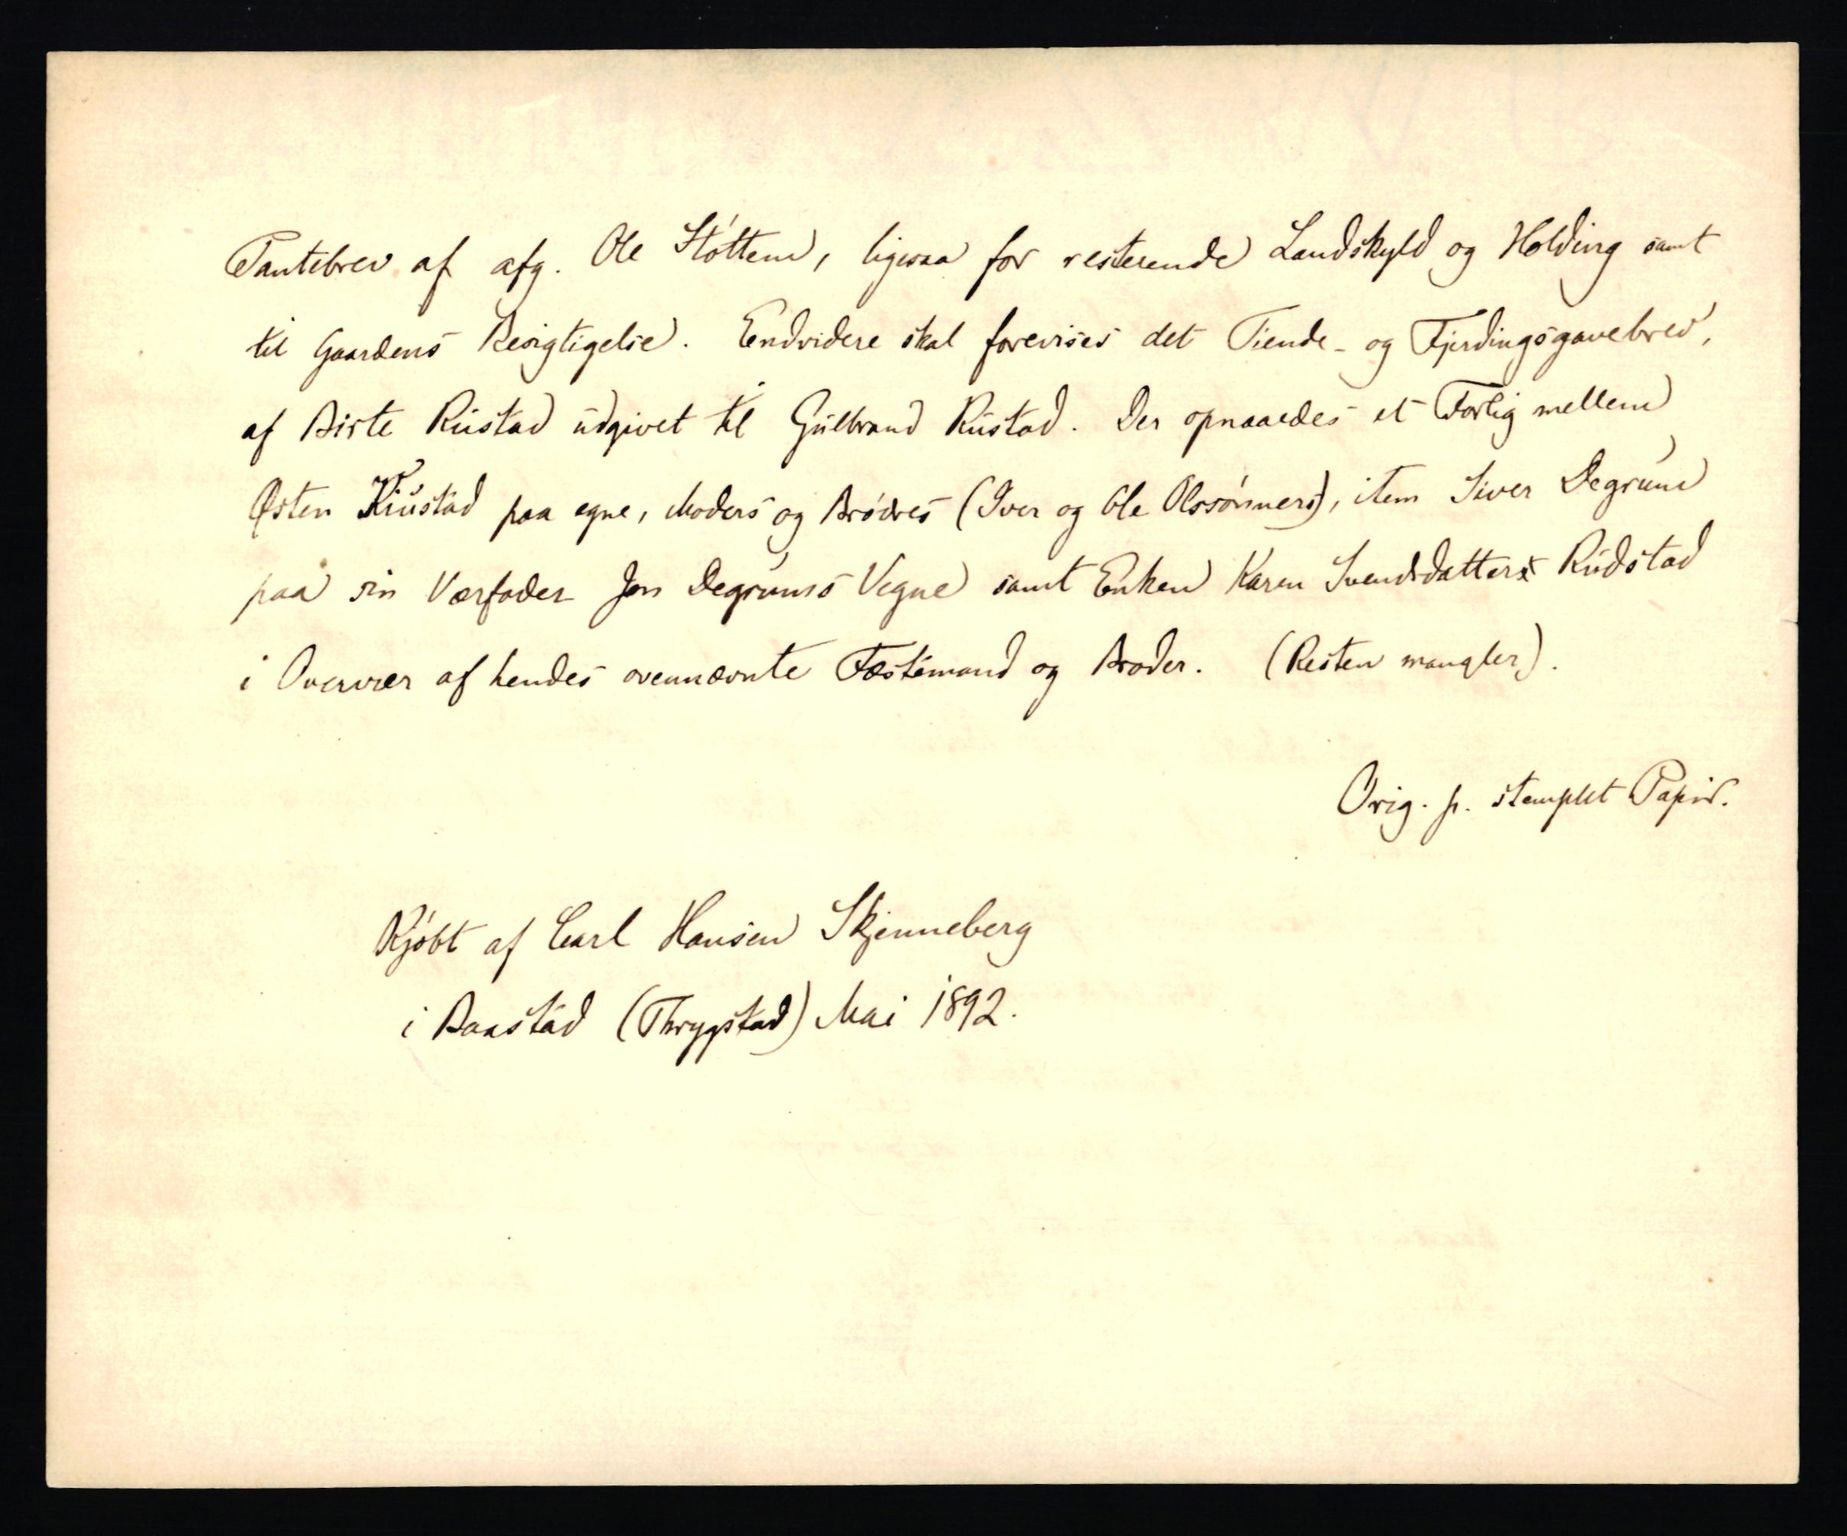 Pantebrev af afg. Ole Støttem, ligesaa for resterende Landskyld og Holding samt
til Gaardens Besigtigelse. Endvidere skal forevises det Tiende- og Fjerdingsgavebrev,
af Birte Rustad udgivet til Gulbrand Rustad. Der opnaaedes et Forlig mellem
Østen Rustad paa egne, Moders og Brødres (Iver og Ole Olssønner), item Siver Degrum
paa sin Værfader Jon Degrums Vegne samt Enken Karen Svendsdatter Rudstad
i Overvær af hendes ovennævnte Fæstemand og Broder. (Resten mangler).
Orig. p. stemplet Papir.
Kjøbt af Carl Hansen Skjenneberg
i Baastad (Thrygstad) Mai 1892.